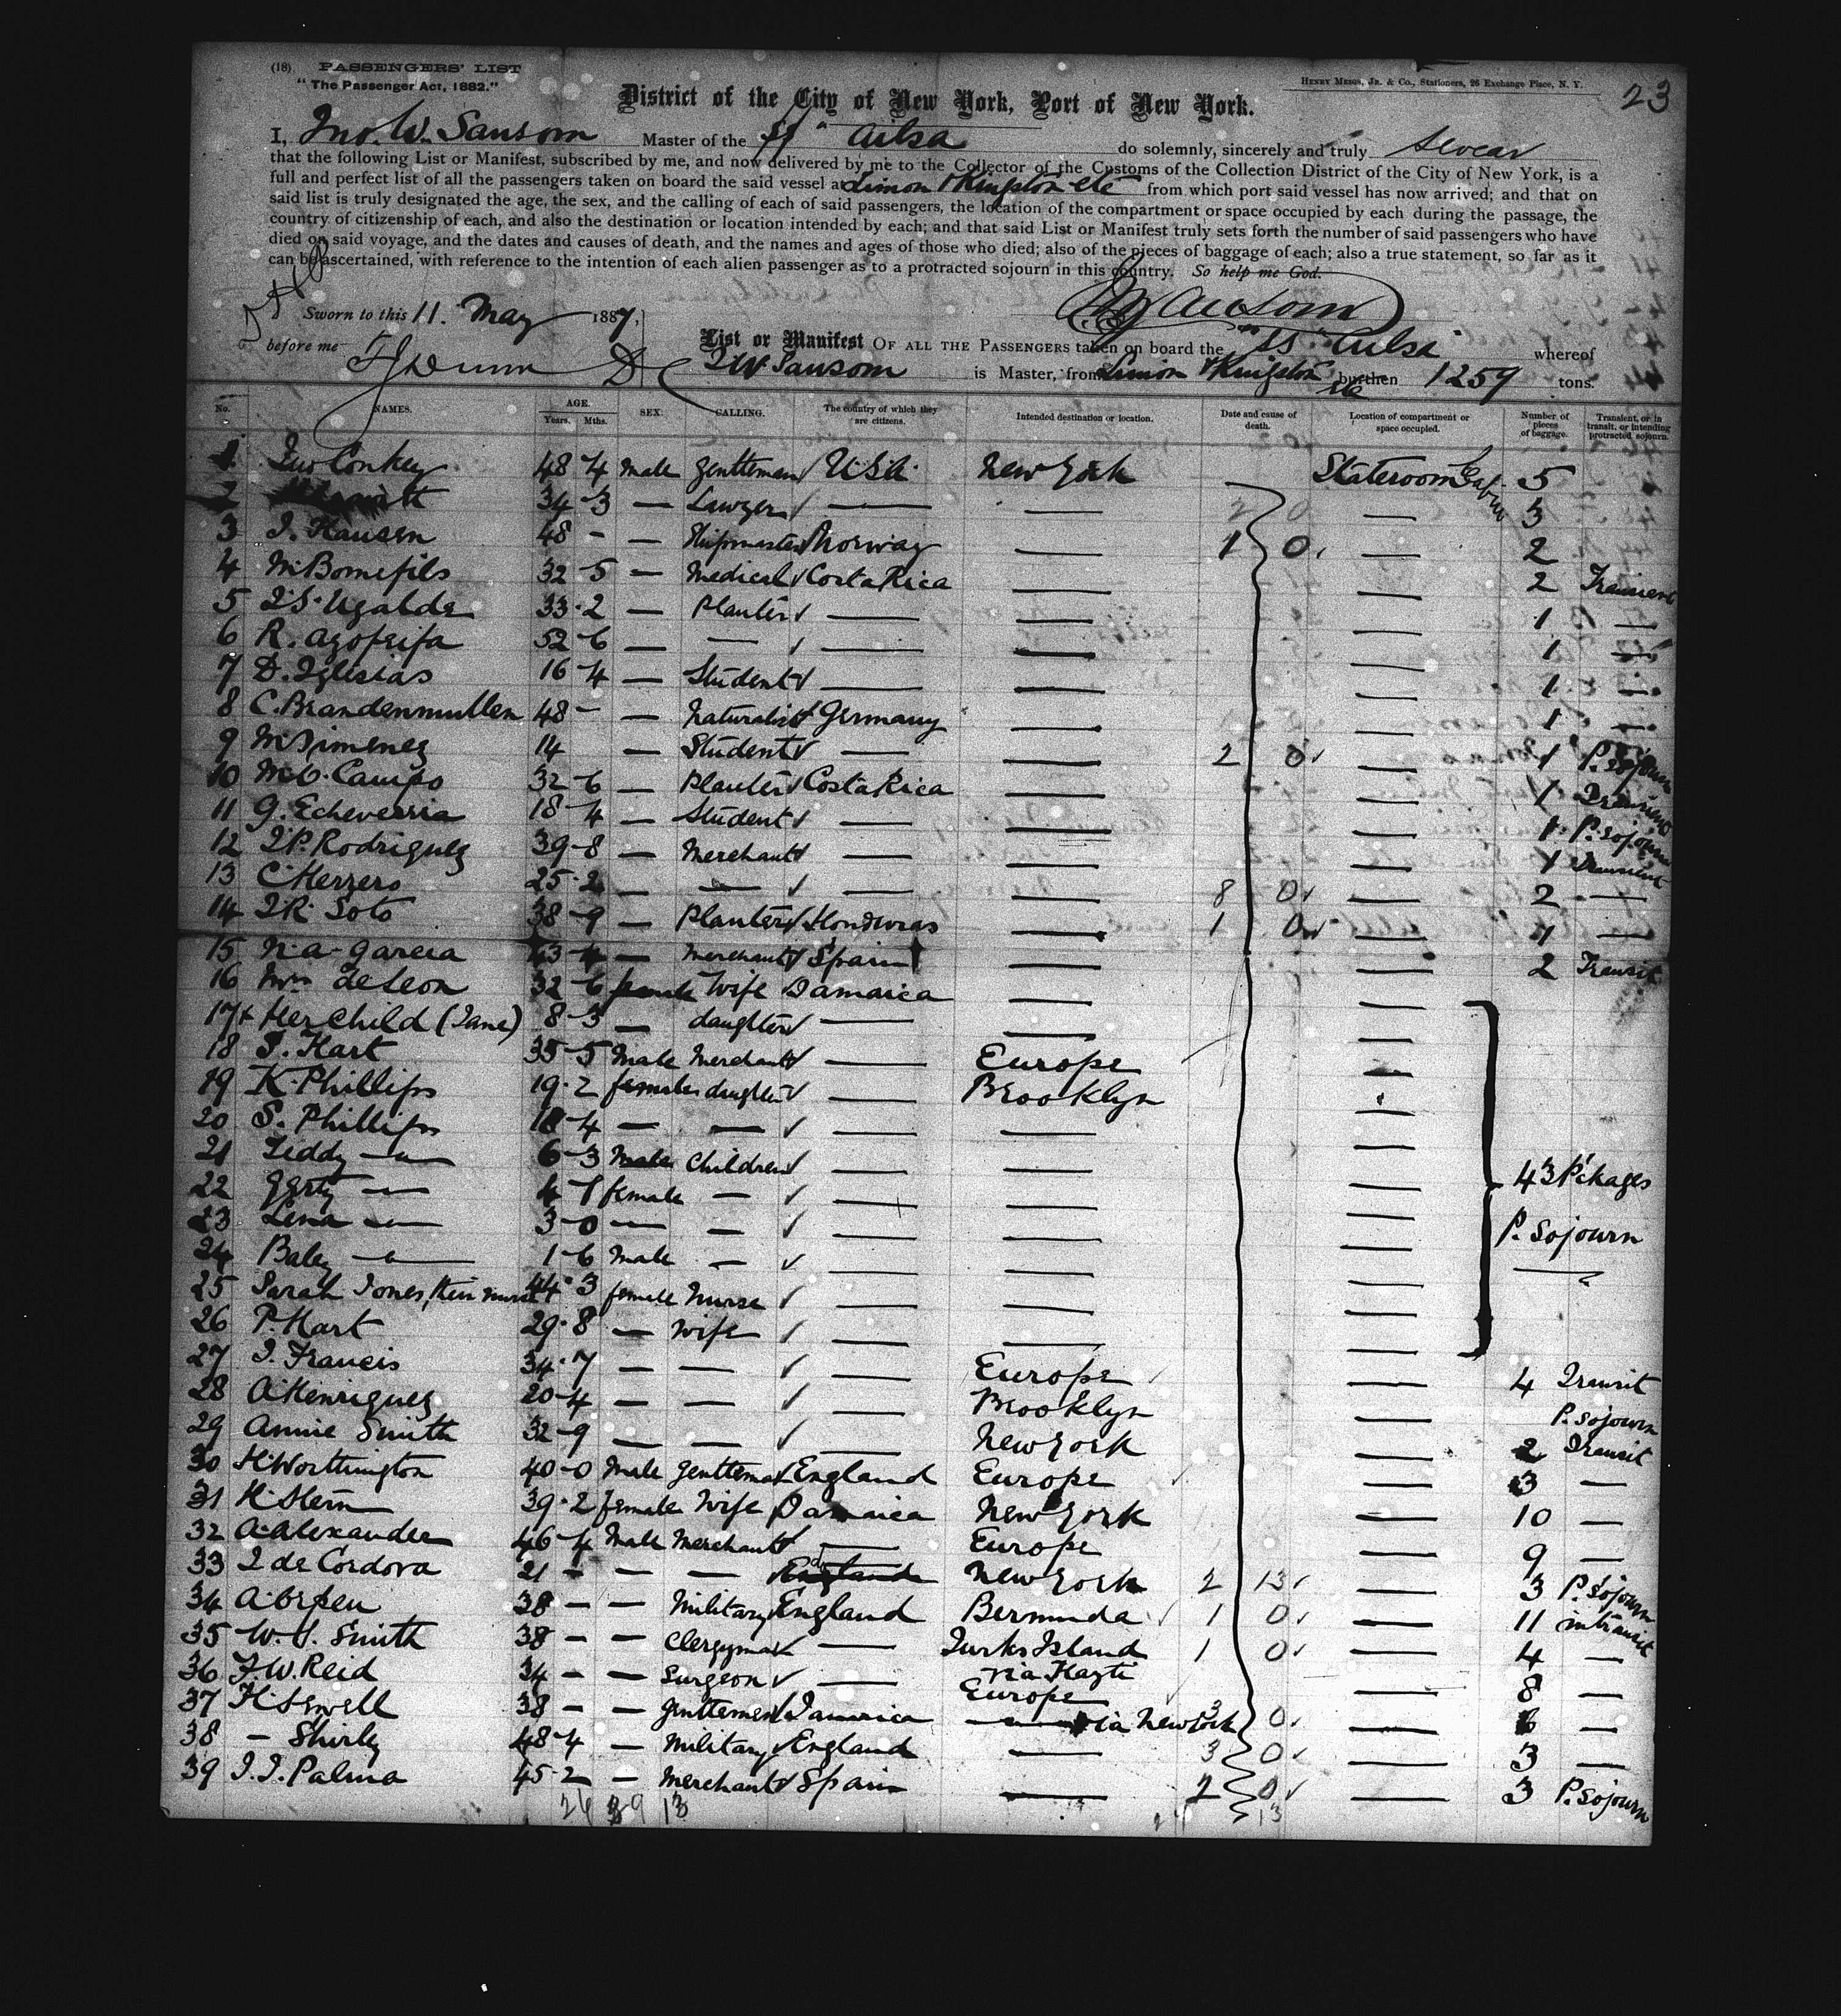 (18) PASSENGERS' LIST
"The Passenger Act, 1882."
HENRY MEIGS, JR. & CO., Stationers, 26 Exchange Place, N. Y.
23
District of the City of New York, Port of New York.
I, Jno. W. Sansom Master of the SS "Ailsa do solemnly, sincerely and truly swear
that the following List or Manifest, subscribed by me, and now delivered by me to the Collector of the Customs of the Collection District of the City of New York, is a
full and perfect list of all the passengers taken on board the said vessel at Limon & Kingston etc from which port said vessel has now arrived; and that on
said list is truly designated the age, the sex, and the calling of each of said passengers, the location of the compartment or space occupied by each during the passage, the
country of citizenship of each, and also the destination or location intended by each; and that said List or Manifest truly sets forth the number of said passengers who have
died on said voyage, and the dates and causes of death, and the names and ages of those who died; also of the pieces of baggage of each; also a true statement, so far as it
can be ascertained, with reference to the intention of each alien passenger as to a protracted sojourn in this country. So help me God.
Sworn to this 11. May 1887,
JWSansom
before me
List or Manifest OF ALL THE PASSENGERS taken on board the "SS" Ailsa" whereof
J W Sansom is Master, from Limon & Kingston etc burthen 1259 tons.
No. NAMES. AGE. Years. Mths. SEX. CALLING. The country of which they are citizens. Intended destination or location. Date and cause of death. Location of compartment or space occupied. Number of pieces of baggage. Transient, or in transit, or intending protracted sojourn.
1 Jno Conkey 48-4 male gentleman / USA. New York Stateroom Cabin 5
2 34-3 — Lawyer / — — 2 0 — 3
3 J. Hansen 48 - — Shipmaster / Norway — 1 0 — 2
4 M. Bonnefils 32-5 — Medical / Costa Rica — — 2 Transient
5 J.S. Ugalde 33.2 — Planter / — — — 1 —
6 R. Azofeifa 52-6 — — / — — — 1 —
7 D. Iglesias 16-4 — Student / — — — 1 —
8 C. Brandenmullen 48 - — Naturalist / Germany — — 1 —
9 M Jimenez 14 — Student / — — 2 0 — 1 P. Sojourn
10 M.O. Campo 32-6 — Planter / Costa Rica — — 1 Transient
11 G. Echeverria 18-4 — Student / — — — 1 P. Sojourn
12 J P. Rodriguez 39-8 — Merchant / — — — 1 Transient
13 C Herrero 25.2 — — / — — 8 0 — 2 —
14 J R Soto 38-9 — Planter / Honduras — 1 0 — 1 —
15 N. A. Garcia — merchant / Spain — — 2 Transit
16 Mrs de Leon 32-6 female Wife Jamaica — —
17 + Her Child (Jane) 8-3 — daughter / — — —
18 S. Hart 35-5 Male Merchant / — Europe —
19 K. Phillips 19.2 female daughter / — Brooklyn —
20 S. Phillips 18-4 — — / — — —
21 Teddy — 6-3 Male Children / — — —
43 P'ckages
22 Gerty — 4-1 female — / — — —
23 Lena — 3-0 — — / — — —
P. Sojourn
24 Baby — 1-6 Male — / — — —
25 Sarah Jones, their nurse 44.3 female Nurse / — — —
26 P. Hart 29.8 — Wife / — — —
27 J. Francis 34.7 — — / — Europe — 4 Transit
28 A. Henriquez 20-4 — — / — Brooklyn — P. Sojourn
29 Annie Smith 32-9 — — / — New York — 2 Transit
30 H. Worthington 40-0 Male gentleman / England Europe — 3 —
31 H. Stern 39.2 female Wife Jamaica New York — 10 —
32 A. Alexander 46-4 Male Merchant / — Europe — 9 —
33 J de Cordova 21 - — — England do New York 2 13 — 3 P. Sojourn
34 A. Orpen 38 - — Military England Bermuda 1 0 — 11 in transit
35 W. S. Smith 38 - — Clergyman / — Turks Island via Hayti 1 0 — 4 —
36 F. W. Reid 34 - — Surgeon / — Europe — 8 —
37 H. Sewell 38 - — gentleman / Jamaica — via New York 3 0 — 6 —
38 - Shirley 48-4 — Military / England — 3 0 — 3 —
39 J. J. Palma 45-2 — Merchant / Spain — 2 0 — 3 P. Sojourn
26 39 13
13